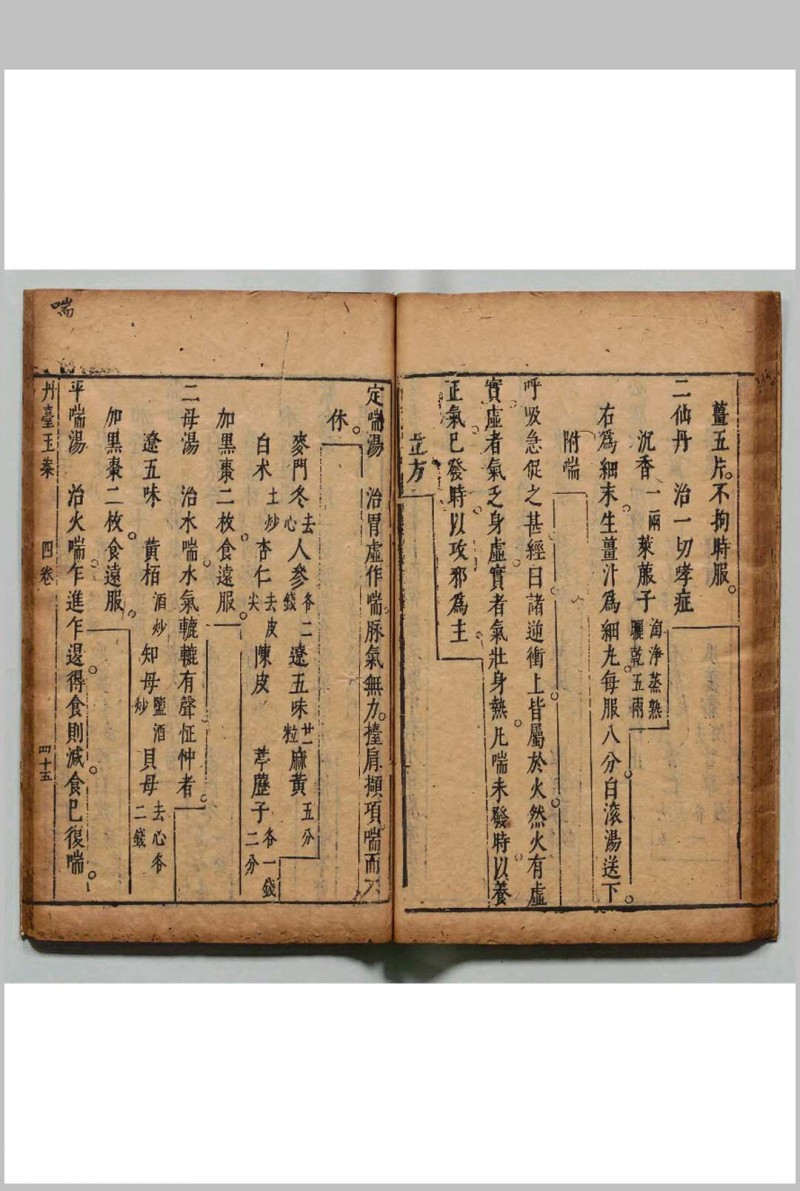 薑五片。不拘時服。
二仙丹　治一切哮症
沉香一兩　萊菔子淘淨蒸熟曬乾五兩
右爲細末生薑汁爲細丸每服八分白滾湯送下。
附喘
呼吸急促之甚經曰諸逆衝上皆屬於火然火有虛
實虛者氣乏身虛實者氣壯身熱凡喘未發時以養
正氣已發時以攻邪爲主
立方
定喘湯　治胃虛作喘脉氣無力。擡肩擷項喘而不
休。
麥門冬去心　人參各二錢　遼五味廿一粒　麻黃五分
白术土炒　杏仁去皮尖　陳皮　葶藶子各一錢二分
加黑棗二枚食遠服。
二母湯　治水喘。水氣轆轆有聲怔忡者。
遼五味　黃栢酒炒　知母鹽酒炒　貝母去心各二錢
加黑棗二枚。食遠服。
平喘湯　治火喘。乍進乍退。得食則減。食已復喘。
丹臺玉案　四卷　四十五
喘